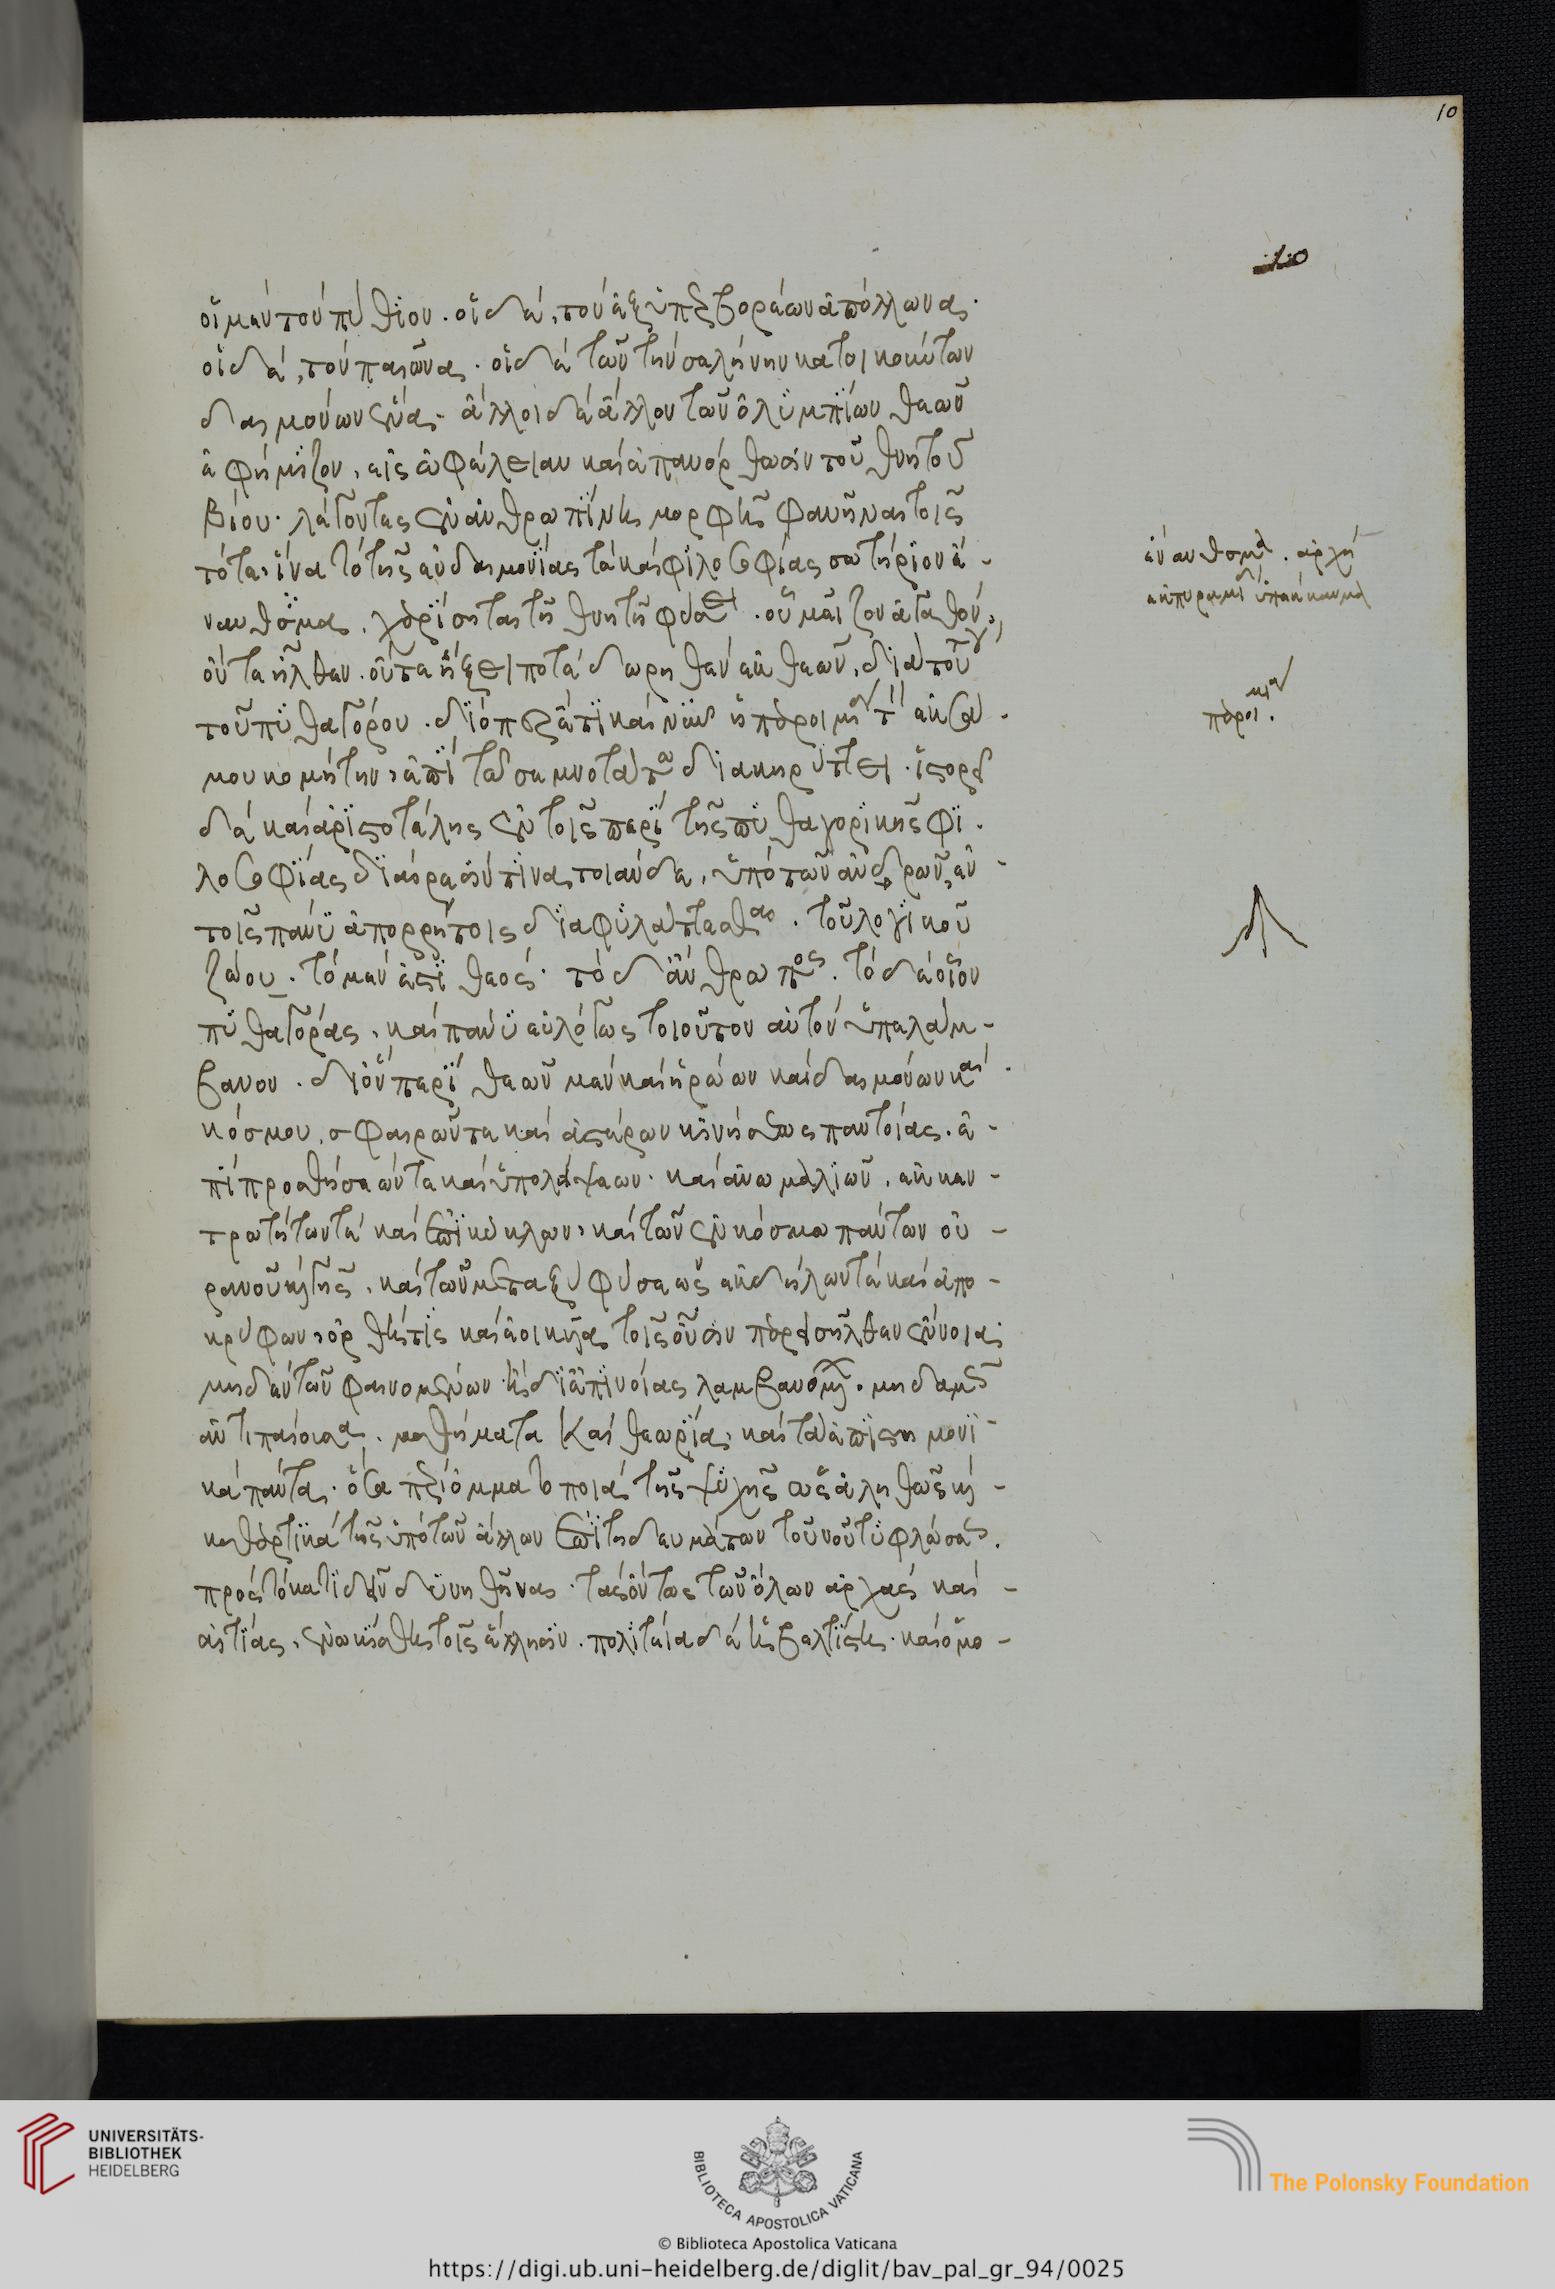 οἱ μὲν τὸν πύθιον. οἱ δὲ, τὸν ἐξ ὑπερβορέων ἀπόλλωνα.
οἱ δὲ, τὸν παιῶνα. οἱ δὲ τῶν τὴν σελήνην κατοικούντων
δαιμόνων ἕνα. ἄλλοι δὲ ἄλλον τῶν ὀλυμπίων θεῶν
ἐφήμιζον, εἰς ὠφέλειαν καὶ ἐπανόρθωσιν τοῦ θνητοῦ
βίου. λέγοντες ἐν ἀνθρωπίνη μορφῆ φανῆναι τοῖς
τότε, ἵνα τὸ τῆς εὐδαιμονίας τὲ καὶ φιλοσοφίας σωτήριον ἔ-
ναυσμα, χαρίσηται τῆ θνητῆ φύσει. οὗ μεῖζον ἀγαθὸν,
οὔτε ἦλθεν. οὔτε ἥξει ποτὲ δωρηθὲν ἐκ θεῶν, διὰ τοῦ
τοῦ πυθαγόρου. διόπερ ἔτι καὶ νῦν ἡ παροιμία τὸν ἐκ σά-
μου κομήτην, ἐπὶ τῶ σεμνοτάτω διακηρύττει. ἱστορεῖ
δὲ καὶ ἀριστοτέλης ἐν τοῖς περὶ τῆς πυθαγορικῆς φι-
λοσοφίας διαίρεσίν τινα τοιάνδε, ὑπὸ τῶν ἀνδρῶν, ἐν
τοῖς πάνυ ἀπορρήτοις διαφυλάττεσθαι. τοῦ λογικοῦ
ζώου. τὸ μὲν ἐστὶ θεός. τὸ δ ἄνθρωπος. τὸ δὲ οἷον
πυθαγόρας. καὶ πάνυ εὐλόγως τοιοῦτον αὐτὸν ὑπελάμ-
βανον. δι οὗ περὶ θεῶν μὲν καὶ ἡρώων καὶ δαιμόνων καὶ
κόσμου, σφαιρῶν τε καὶ ἀστέρων κινήσεως παντοίας. ἐ-
πιπροσθήσεών τε καὶ ὑπολείψεων. καὶ ἀνωμαλιῶν, ἐκκεν-
τρωτήτων τὲ καὶ ἐπικύκλων, καὶ τῶν ἐν κόσμω πάντων οὐ-
ρανοῦ καὶ γῆς, καὶ τῶν μεταξὺ φύσεων ἐκδήλων τὲ καὶ ἀπο-
κρύφων, ὀρθή τις καὶ ἐοικυῖα τοῖς οὖσιν παρεισῆλθεν ἔννοια.
μηδενὶ τῶν φαινομένων ἢ δι ἐπινοίας λαμβανομένων. μηδαμῶς
ἀντιπαίουσα. μαθήματα καὶ θεωρία, καὶ τὰ ἐπιστημονι-
κὰ πάντα. ὅσα περὶ ὀμματοποιὰ τῆς ψυχῆς ὡς ἀληθῶς καὶ
καθαρτικὰ τῆς ὑπὸ τῶν ἄλλων ἐπιτηδευμάτων τοῦ νοῦ τυφλώσεως.
πρὸς τὸ κατιδεῖν δυνηθῆναι. τὰς ὄντως τῶν ὅλων ἀρχὰς καὶ
αἰτίας, ἐνωκίσθη τοῖς ἕλλησιν. πολιτεία δὲ ἡ βελτίστη. καὶ ὁμο-
ἔναυσμα. ἀρχὴ
ἐκπυρισμοῦ ὑπέκκαυμα
παροιμία.
10
10
UNIVERSITÄTS-
BIBLIOTHEK
HEIDELBERG
BIBLIOTECA APOSTOLICA VATICANA
The Polonsky Foundation
© Biblioteca Apostolica Vaticana
https://digi.ub.uni-heidelberg.de/diglit/bav_pal_gr_94/0025